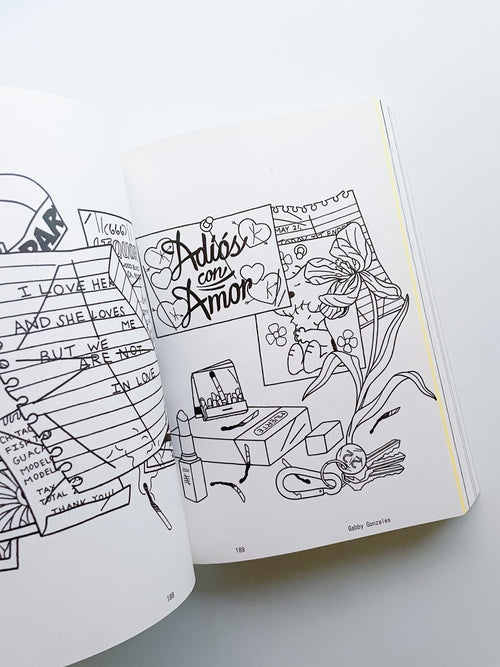 PAR
(666)
I LOVE HE
AND SHE LOVES
ME
BUT WE
ARE NOT
IN LOVE
FISH
GUACA
MODEL
MODEL
TAX
TOTAL
THANK YOU!
188
Adiós
con
Amor
MAY 21
FIERCE
189
Gabby Gonzales